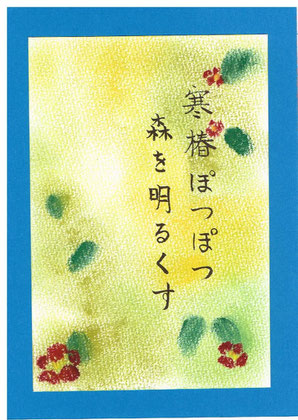 寒椿ぽつぽつ
森を明るくす